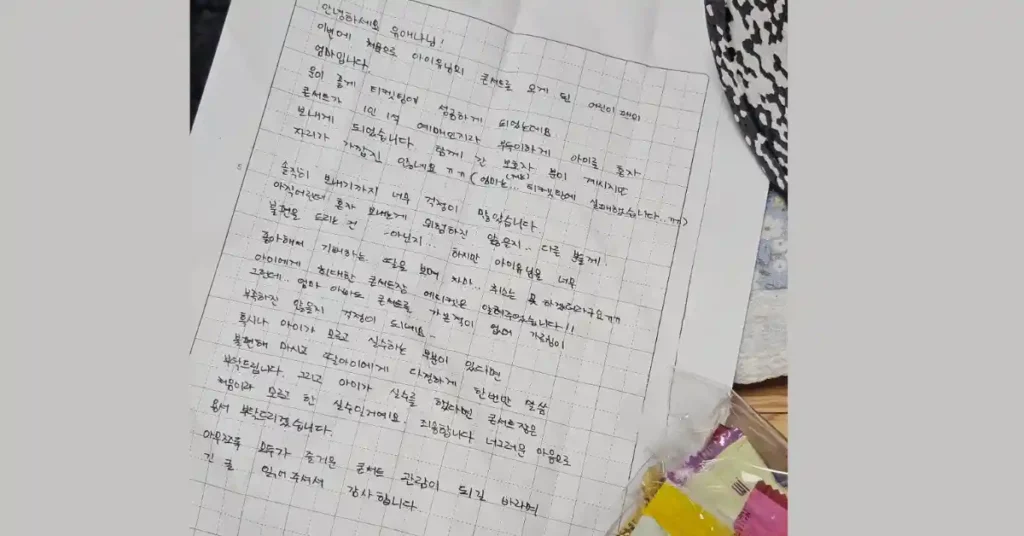 안녕하세요 유애나님!
이번에 처음으로 아이유님의 콘서트로 오게 된 어린이 팬의
엄마입니다.
운이 좋게 티켓팅에 성공하게 되었는데요
콘서트가 1인 1석 예매인지라 부득이하게 아이를 혼자
보내게 되었습니다. 함께 간 보호자 분이 계시지만
자리가 가깝진 않네요ㅠㅠ (엄마는(저는)... 티켓팅에 실패했습니다..ㅠㅠ)
솔직히 보내기까지 너무 걱정이 많았습니다
아직어린데 혼자 보내는게 위험하진 않을지.. 다른 분들께
불편을 드리는 건 아닌지.. 하지만 아이유님을 너무
좋아해서 기대하는 딸을 보며 차마.. 취소는 못 하겠더라구요ㅠㅠ
아이에게 최대한 콘서트장 에티켓은 알려주었습니다!!
그런데.. 엄마 아빠도 콘서트를 가본적이 없어 가르침이
부족하진 않을지 걱정이 되네요..
혹시나 아이가 모르고 실수하는 부분이 있다면
불편해 마시고 딸아이에게 다정하게 한번만 말씀
부탁드립니다. 그리고 아이가 실수를 했다면 콘서트장은
처음이라 모르고 한 실수일거예요. 죄송합니다 너그러운 마음으로
용서 부탁드리겠습니다.
아무쪼록 모두가 즐거운 콘서트 관람이 되길 바라며
긴 글 읽어주셔서 감사합니다